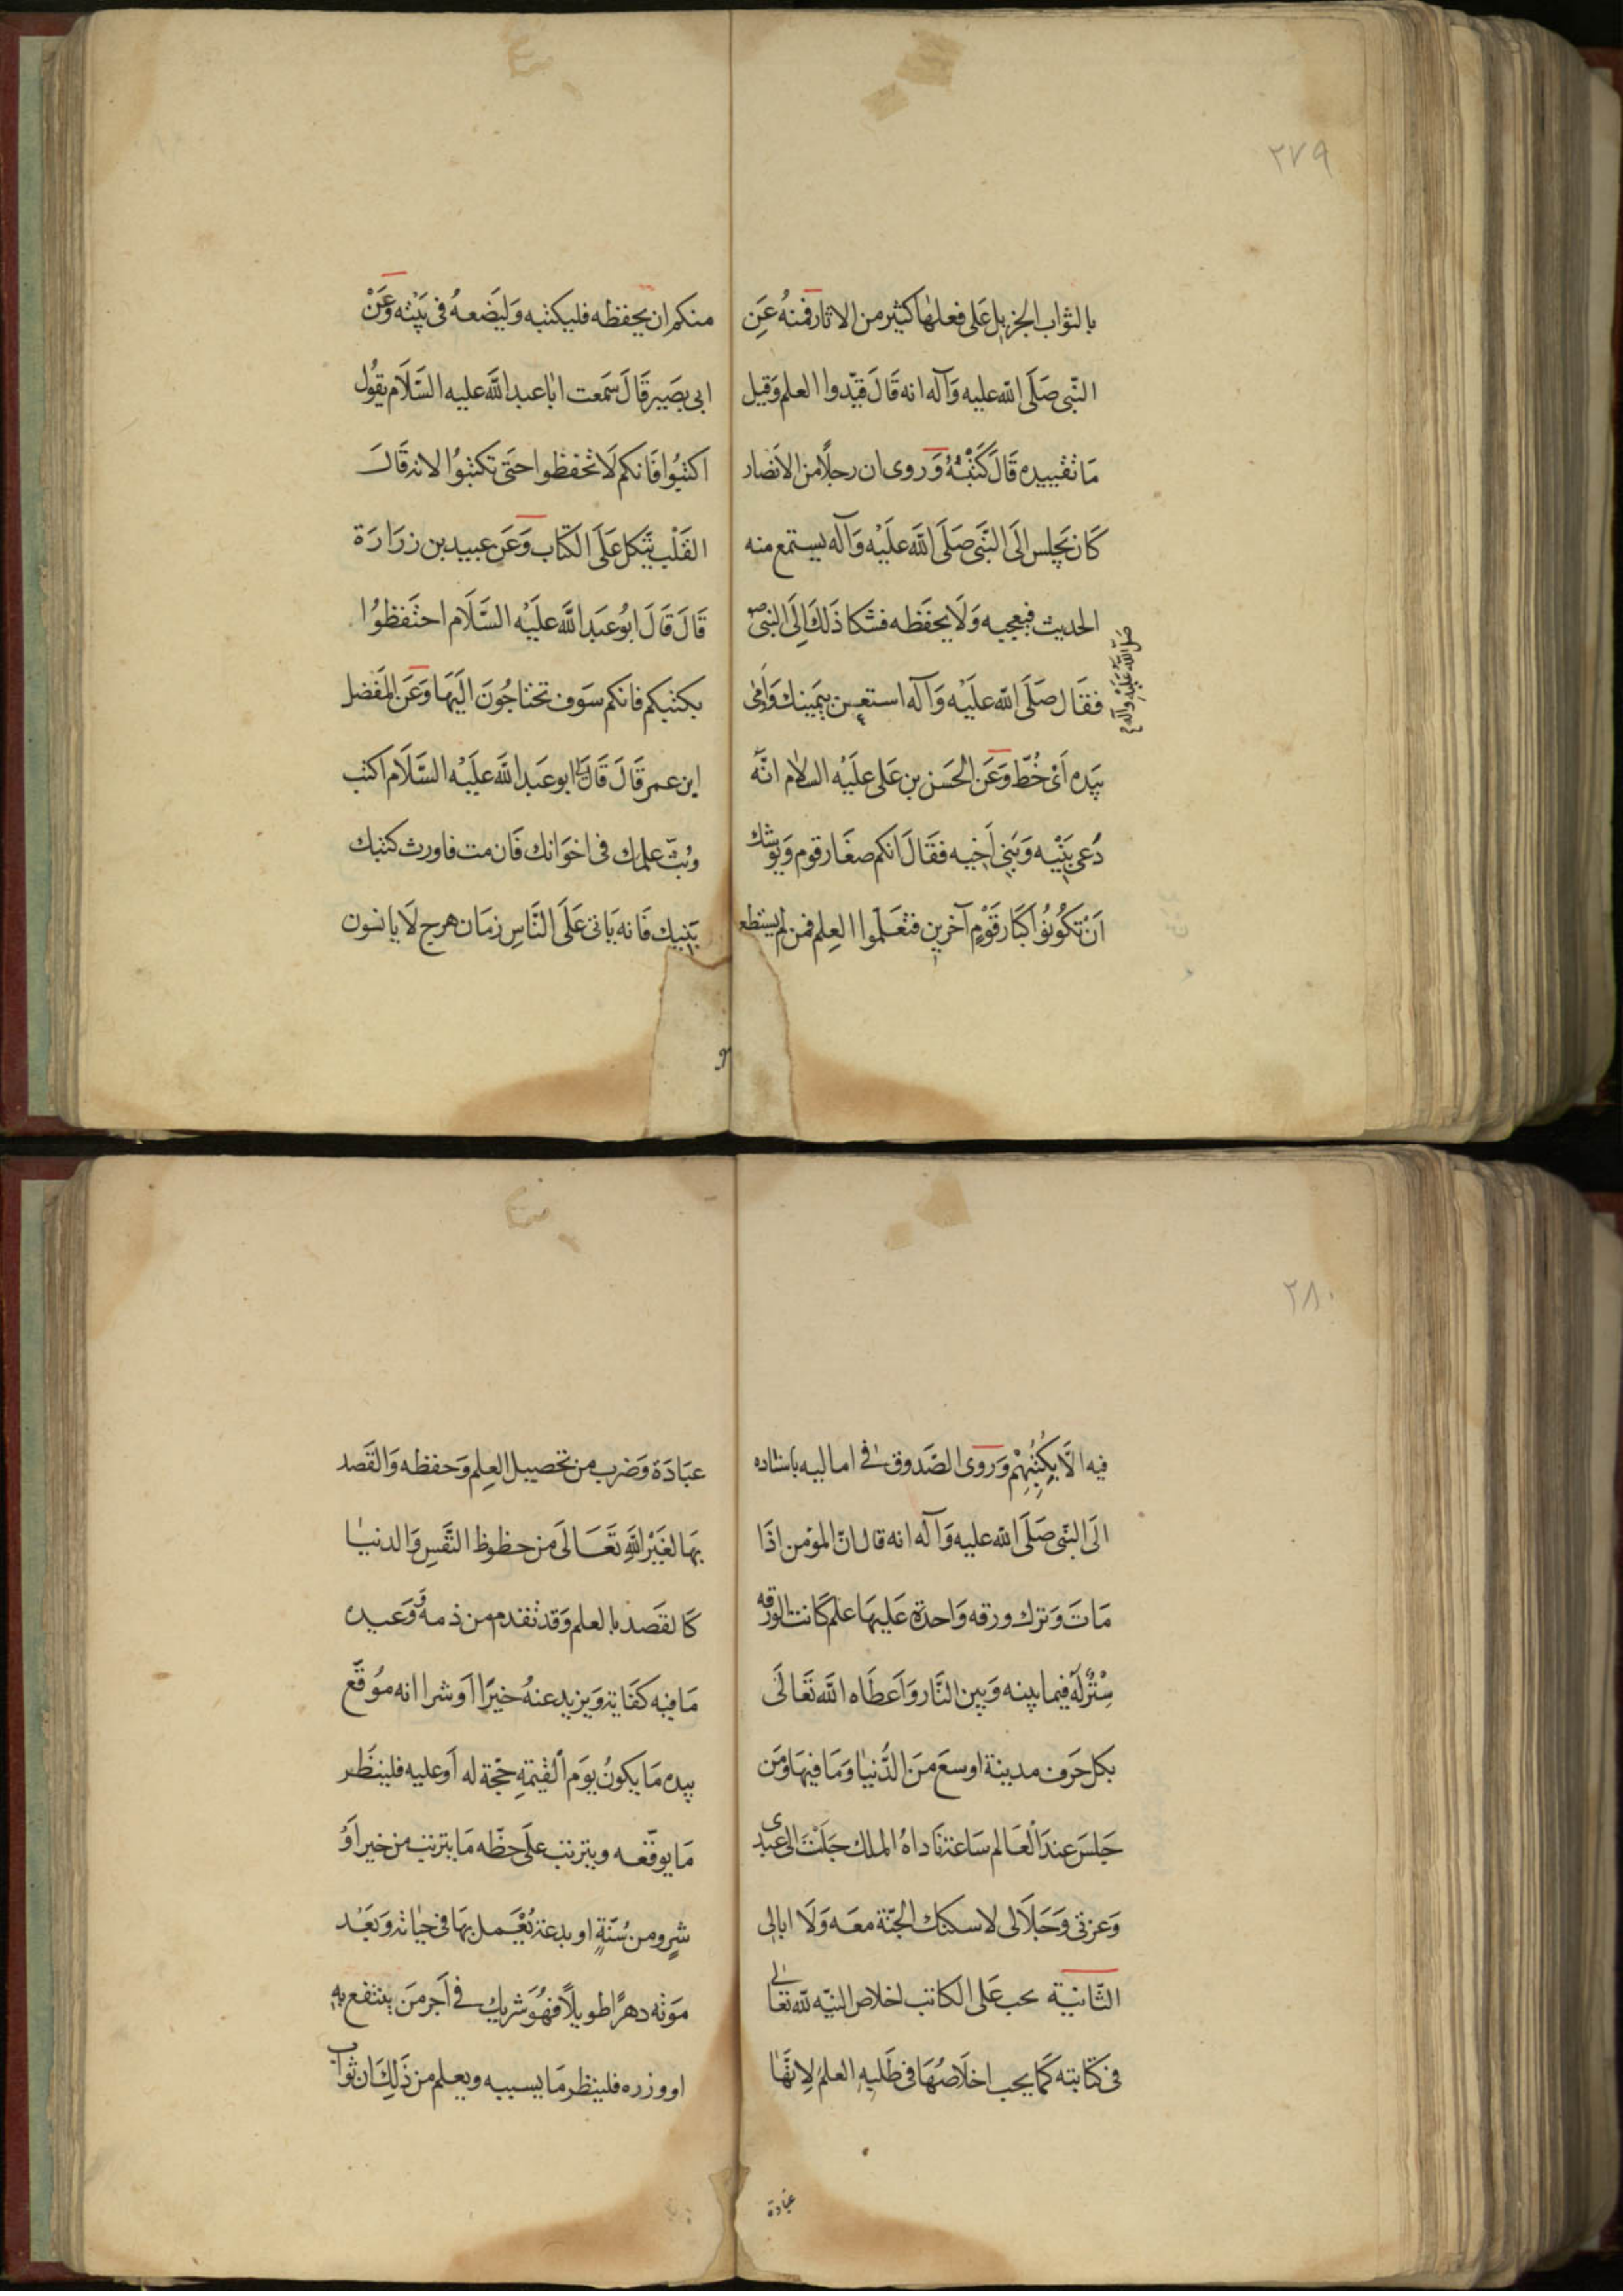 ٢٧٩
بالثواب الجزيل على فعلها كثير من الاثار فمنهُ عَنِ
النّبى صَلَّى الله عليه وَآله انه قَالَ قيّدوا العلم وَقيل
مَا تقييده قَالَ كَتْبُهُ وَروى ان رجلًا من الاَنصَار
كَان يَجلس الَى النَّبىّ صَلَّى اللَّه عَلَيْه وَآله يستمع منه
الحديث فيعجبه وَلَا يحفَظه فشكا ذَلكَ اِلَى النبىّ
صلى الله عَلَيْهِ وآله
فقَال صَلَّى الله عليَه وَآله استعِن بيَمينك وَاَومىٰ
بيَده اَىْ خُطّ وَعَن الحَسَن بن عَلى علَيْه السلام انَّه
دُعى بَنْيه وَبَنِى اَخِيه فقَالَ انكم صغَار قوم وَيوشك
اَنْ تكُونُوُا كبَار قَوْمٍ آخرين فتعَلَّموا العِلم فمن لم يستطع
منكم ان يحفظه فليكتبه وَليَضَعهُ فى بَيْته وَعَنْ
ابى بصَير قَالَ سَمعت ابَا عبد اللَّه عليه السَّلَام يقُول
اكتبُوا فَانكم لَا تحفظوا حتَى تكتبُوُا لانه قَالَ
القَلْب يَتكل عَلَى الكتَاب وَعَن عبيد بن زرَارَة
قَالَ قَالَ ابُو عَبد اللَّه علَيْه السَّلَام احتَفظوُا
بكتبكم فانكم سَوف تحتاجُونَ الَيهَا وَعَن المفضل
ابن عمر قَالَ قَالَ لى ابو عَبد اللَّه علَيْه السَّلَام اكتب
وبُثّ علمك فى اخوَانك فَان مت فاورث كتبك
بَنيك فَانه يَاتى عَلَى النَّاسِ زمَان هرج لَا يانسون
٢٨٠
فيه الَّا بِكُتُبُهِمْ وَروى الصَّدوق فى اماليه باسناده
الَى النَّبى صَلَّى الله عليه وَآله انه قال انّ المؤمن اذَا
مَاتَ وَترك ورقه وَاحدة عَليهَا علم كَانت الورقه
سِتْرٌ لَهُ فيما بينه وَبين النَّار وَاَعطَاه اللَّه تَعَالَى
بكل حَرف مدينة اوسعَ مَنَ الدُّنيَا وَمَا فيهَا وَمَن
جَلسَ عندَ الْعَالم سَاعة نَادَاهُ الملك جَلَسْتَ الى عبدى
وَعزتى وَجَلَالى لاسكننك الجنَّة معَه وَلَا ابالى
الثّانيْة يجب عَلى الكاتب اخلاص النيّه لله تعالى
فى كتَابته كمَا يجب اخلَاصُهَا فى طَلبهِ العلم لِانهَّا
عبَادة
عبَادَة وَضرب من تحصيل العِلم وَحفظه وَالقَصد
بهَا لغَيْر اللَّهِ تَعَالَى من حظوظ النَّفسِ وَالدنيَا
كَالقَصد بالعلم وَقد تقدم من ذمه وَوَعيده
مَا فيه كفَاية وَيزيد عنهُ خيرًا اَوشرا انه مُوَقّع
بيده مَا يكونُ يوَم الْقيٰمةِ حجّة له اَو عليه فلينظَر
مَا يوقّعه ويترتب علَى خطّه مَا يترتب من خير اَوْ
شرٍ ومن سُنّةٍ او بدعة يُعْمل بهَا فى حيَاته وَبَعْد
مَوته دهرًا طويلًا فهُوَ شريك فى اَجر مَن ينتفع به
او وزره فلينظر مَا يسببه ويعلم من ذَلِكَ ان ثواب